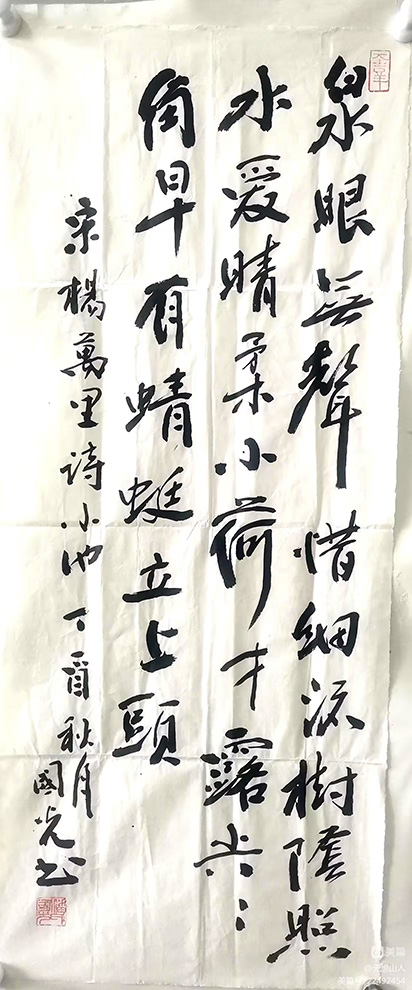 泉眼無聲惜細流樹陰照
水爱晴柔小荷才露尖〻
角早有蜻蜓立上頭
宋楊萬里詩小池丁酉秋月國光书
美篇